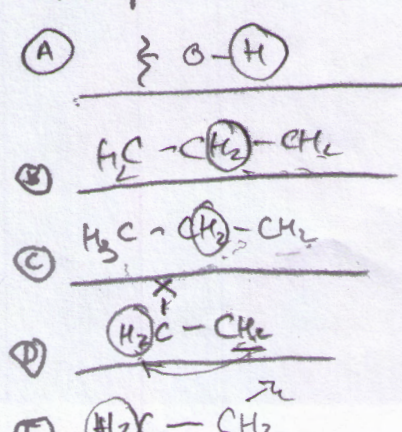 A } O-H
B H2C - CH2 - CH2
C H3C - CH2 - CH2
X
D H2C - CH2
H2C - CH2